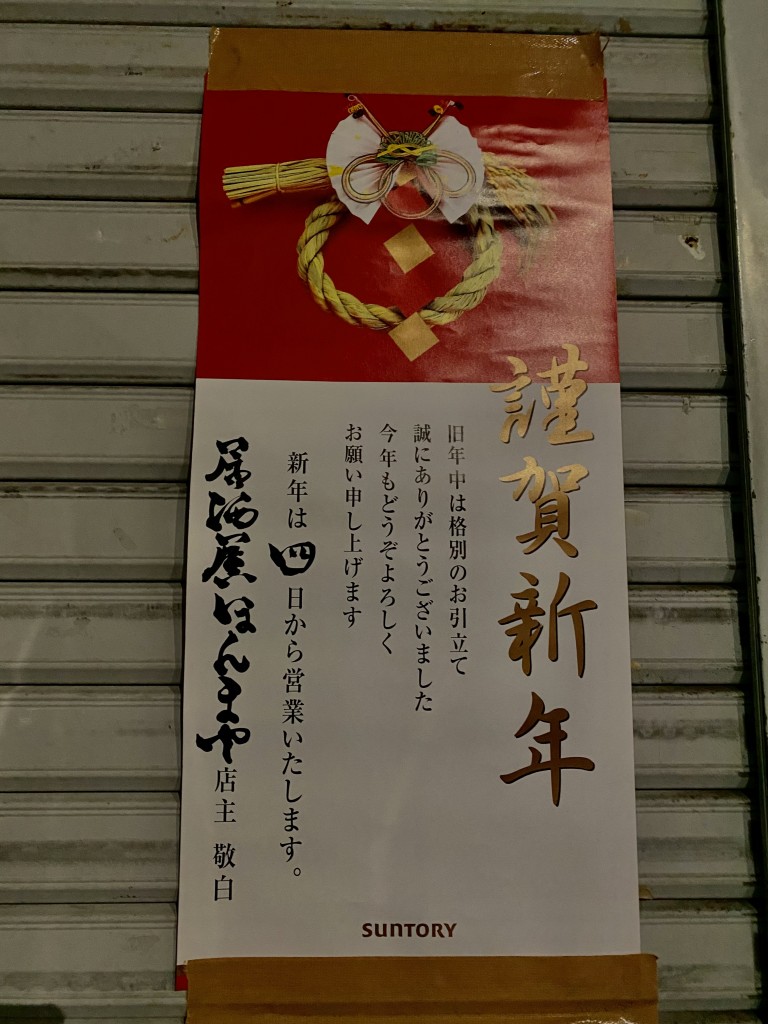 謹賀新年
旧年中は格別のお引立て
誠にありがとうございました
今年もどうぞよろしく
お願い申し上げます
新年は四日から営業いたします。
居酒屋はんまや店主 敬白
SUNTORY